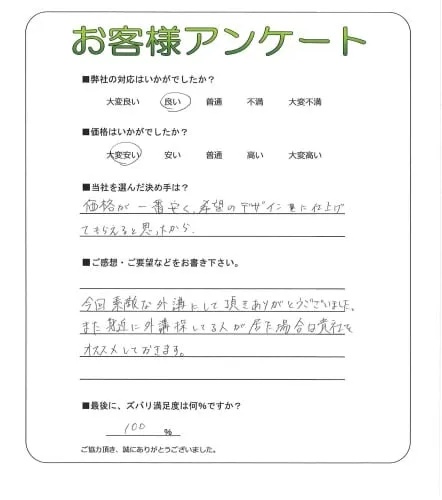 お客様アンケート
■弊社の対応はいかがでしたか？
大変良い 良い 普通 不満 大変不満
■価格はいかがでしたか？
大変安い 安い 普通 高い 大変高い
■当社を選んだ決め手は？
価格が一番安く、希望のデザイン重に仕上げ
てもらえると思ったから.
■ご感想・ご要望などをお書き下さい。
今回素敵な外溝にして頂きありがとうございました。
また身近に外溝探してる人が居た場合は貴社を
オススメしておきます。
■最後に、ズバリ満足度は何％ですか？
100 %
ご協力頂き、誠にありがとうございました。